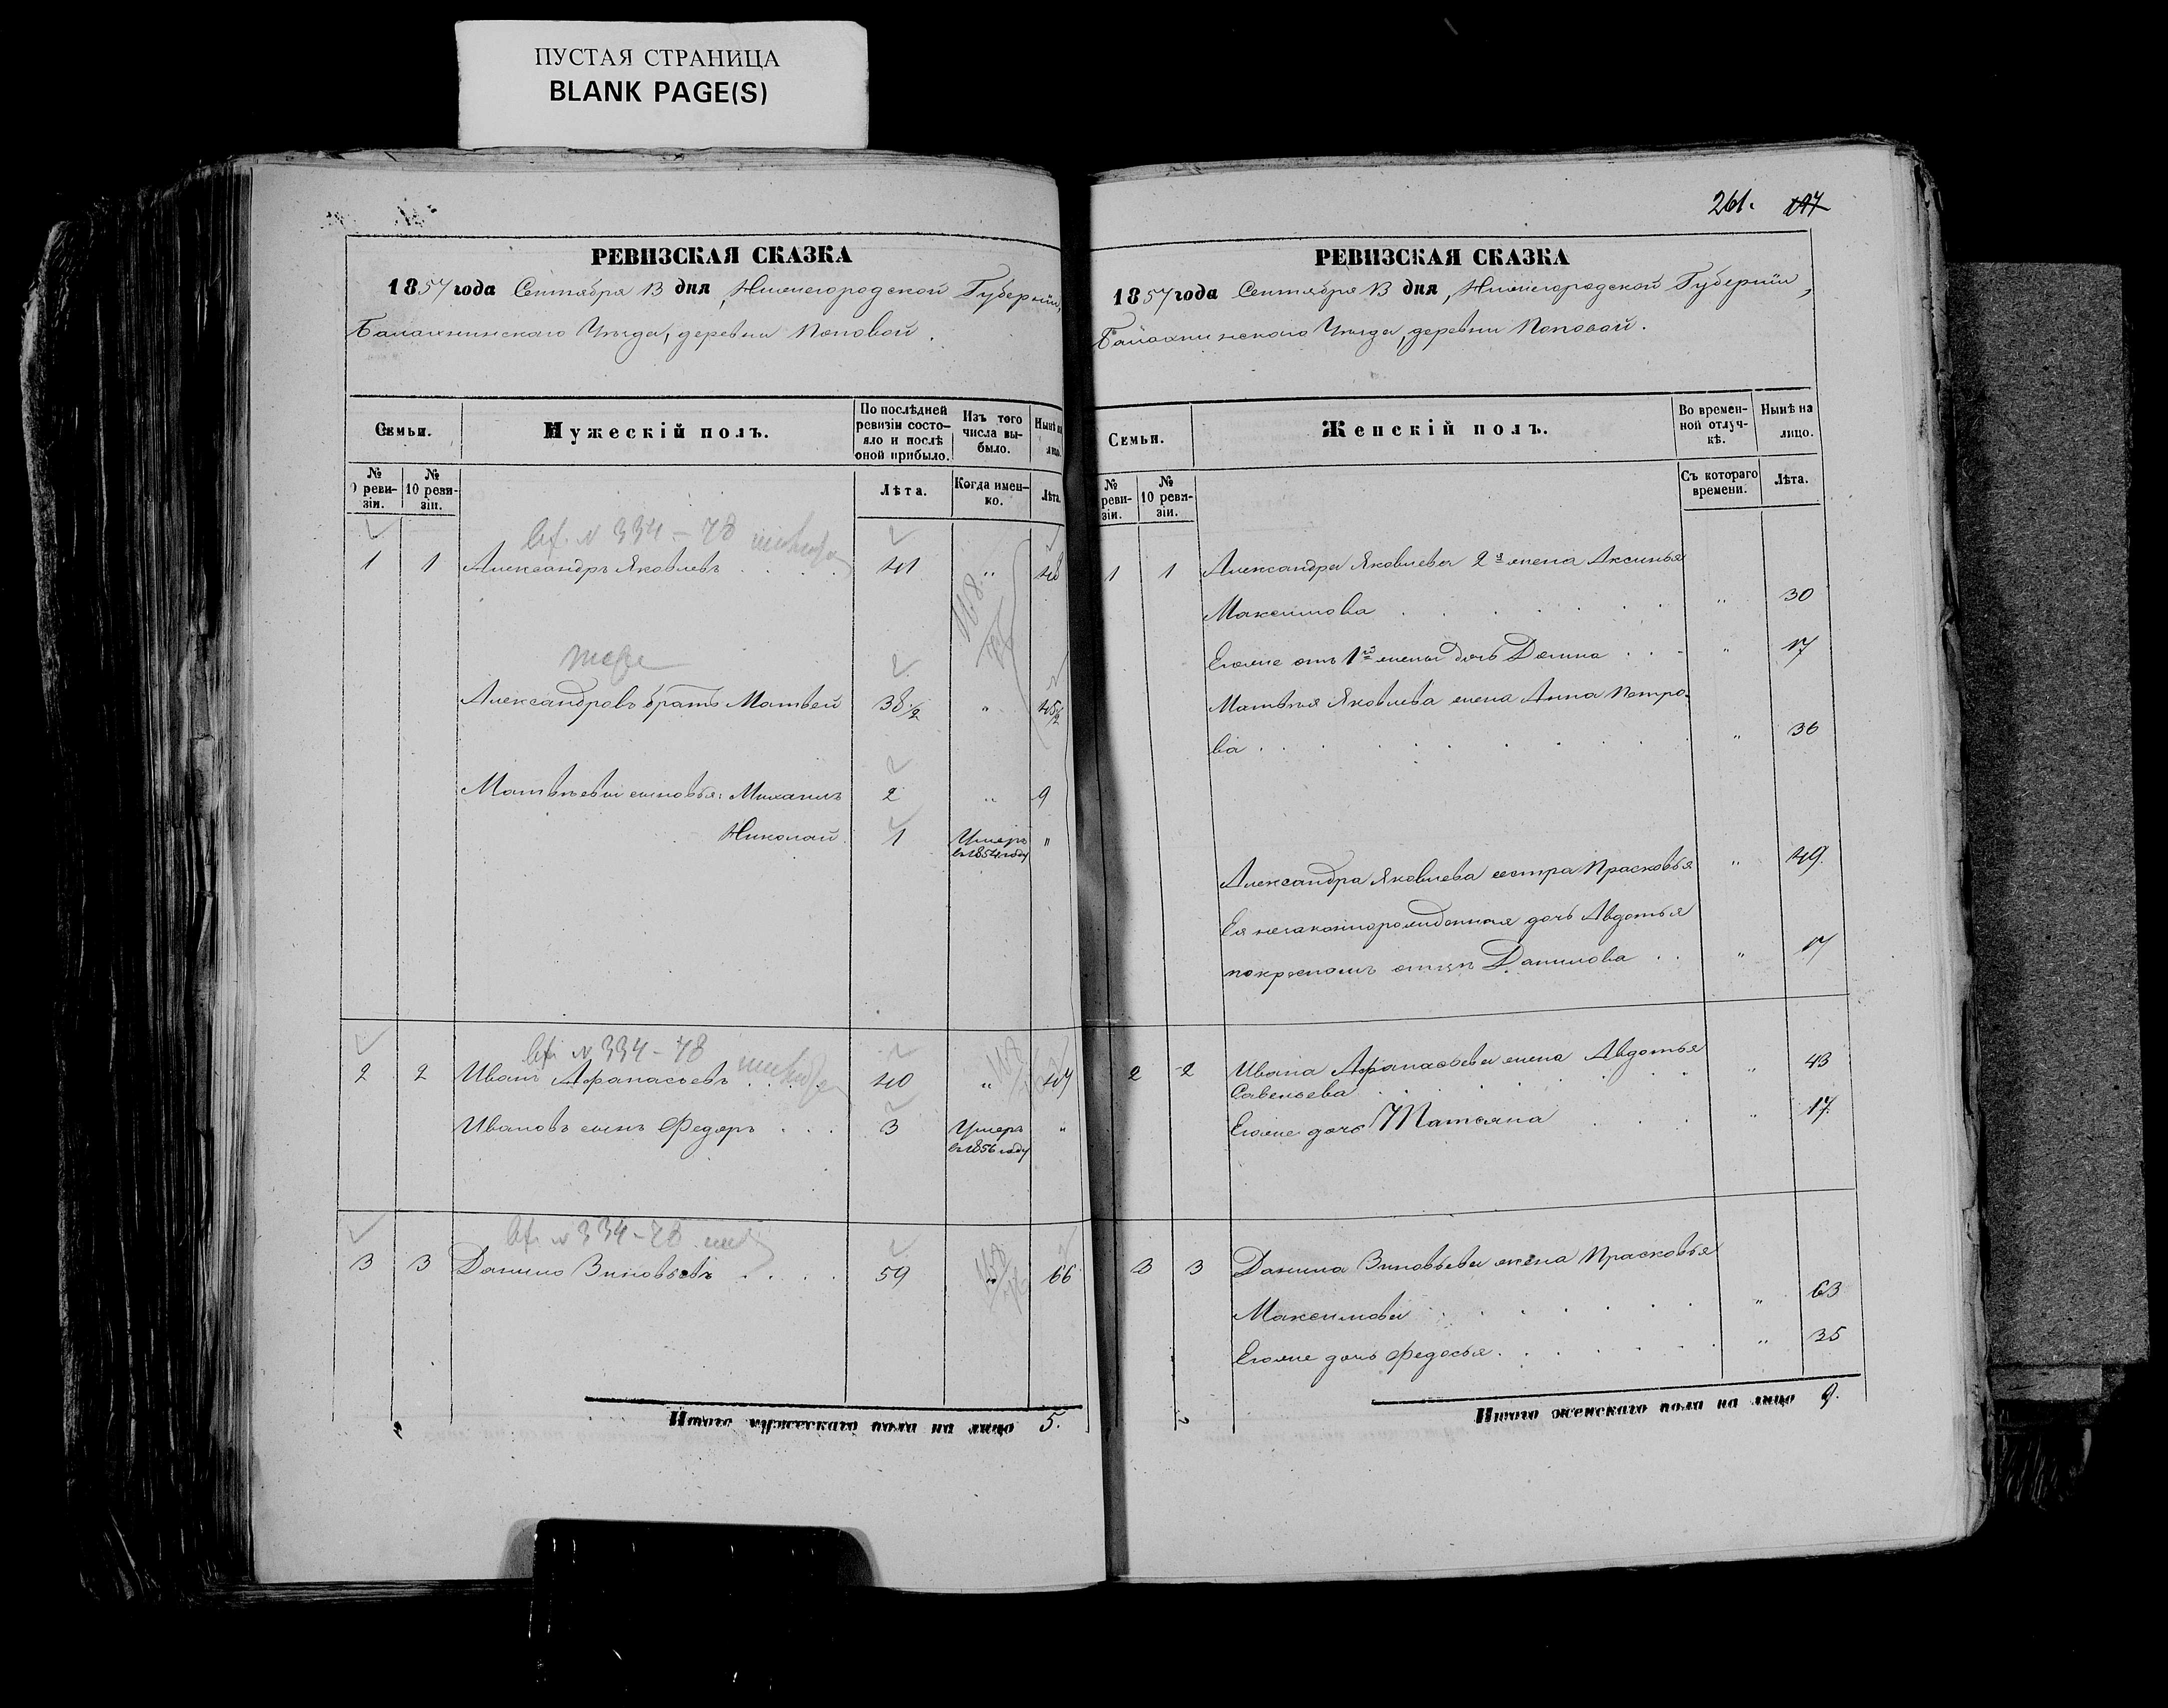 ПУСТАЯ СТРАНИЦА
BLANK PAGE(S)
РЕВИЗСКАЯ СКАЗКА
1857 года Сентября 13 дня, Нижегородской Губерніи,
Балахнинскаго Уѣзда, деревни Поповой.
Семьи.
Мужескій полъ.
По послѣдней ревизіи состояло и послѣ оной прибыло.
Изъ того числа выбыло.
Нынѣ на лицо.
№ 9 ревизіи.
№ 10 ревизіи.
Лѣта.
Когда именно.
Лѣта.
№ 334 - 78
1 1 Александръ Яковлевъ . . . . 41 " 48
Александровъ братъ Матвей 38 1/2 " 45 1/2
Матвѣевы сыновья: Михаилъ 2 " 9
Николай 1 Умеръ в 1854 году "
№ 334 - 78
2 2 Иванъ Афанасьевъ . . . 40 " 47
Ивановъ сынъ Федоръ . . . 3 Умеръ в 1856 году "
№ 334 - 78
3 3 Данило Зиновьевъ . . . . 59 " 66
Итого мужескаго пола на лицо 5.
261. 197
РЕВИЗСКАЯ СКАЗКА
1857 года Сентября 13 дня, Нижегородской Губерніи,
Балахнинскаго Уѣзда, деревни Поповой.
Семьи.
Женскій полъ.
Во временной отлучкѣ.
Нынѣ на лицо.
№ ревизіи.
№ 10 ревизіи.
Съ котораго времени.
Лѣта.
1 1 Александра Яковлева 2я жена Аксинья
Максимова . . . . . . . " 30
Егоже отъ 1й жены дочь Домна . . . " 17
Матвѣя Яковлева жена Анна Петро-
ва . . . . . . . . . " 36
Александра Яковлева сестра Прасковья " 49.
Ея незаконнорожденная дочь Авдотья
по крестномъ отцѣ Данилова . . " 17
2 2 Ивана Афанасьева жена Авдотья
Савельева . . . . . . . " 43
Егоже дочь Татьяна . . . " 17.
3 3 Данила Зиновьева жена Прасковья
Максимова . . . . . . . " 63
Егоже дочь Федосья . . . . . . " 35
Итого женскаго пола на лицо 9.